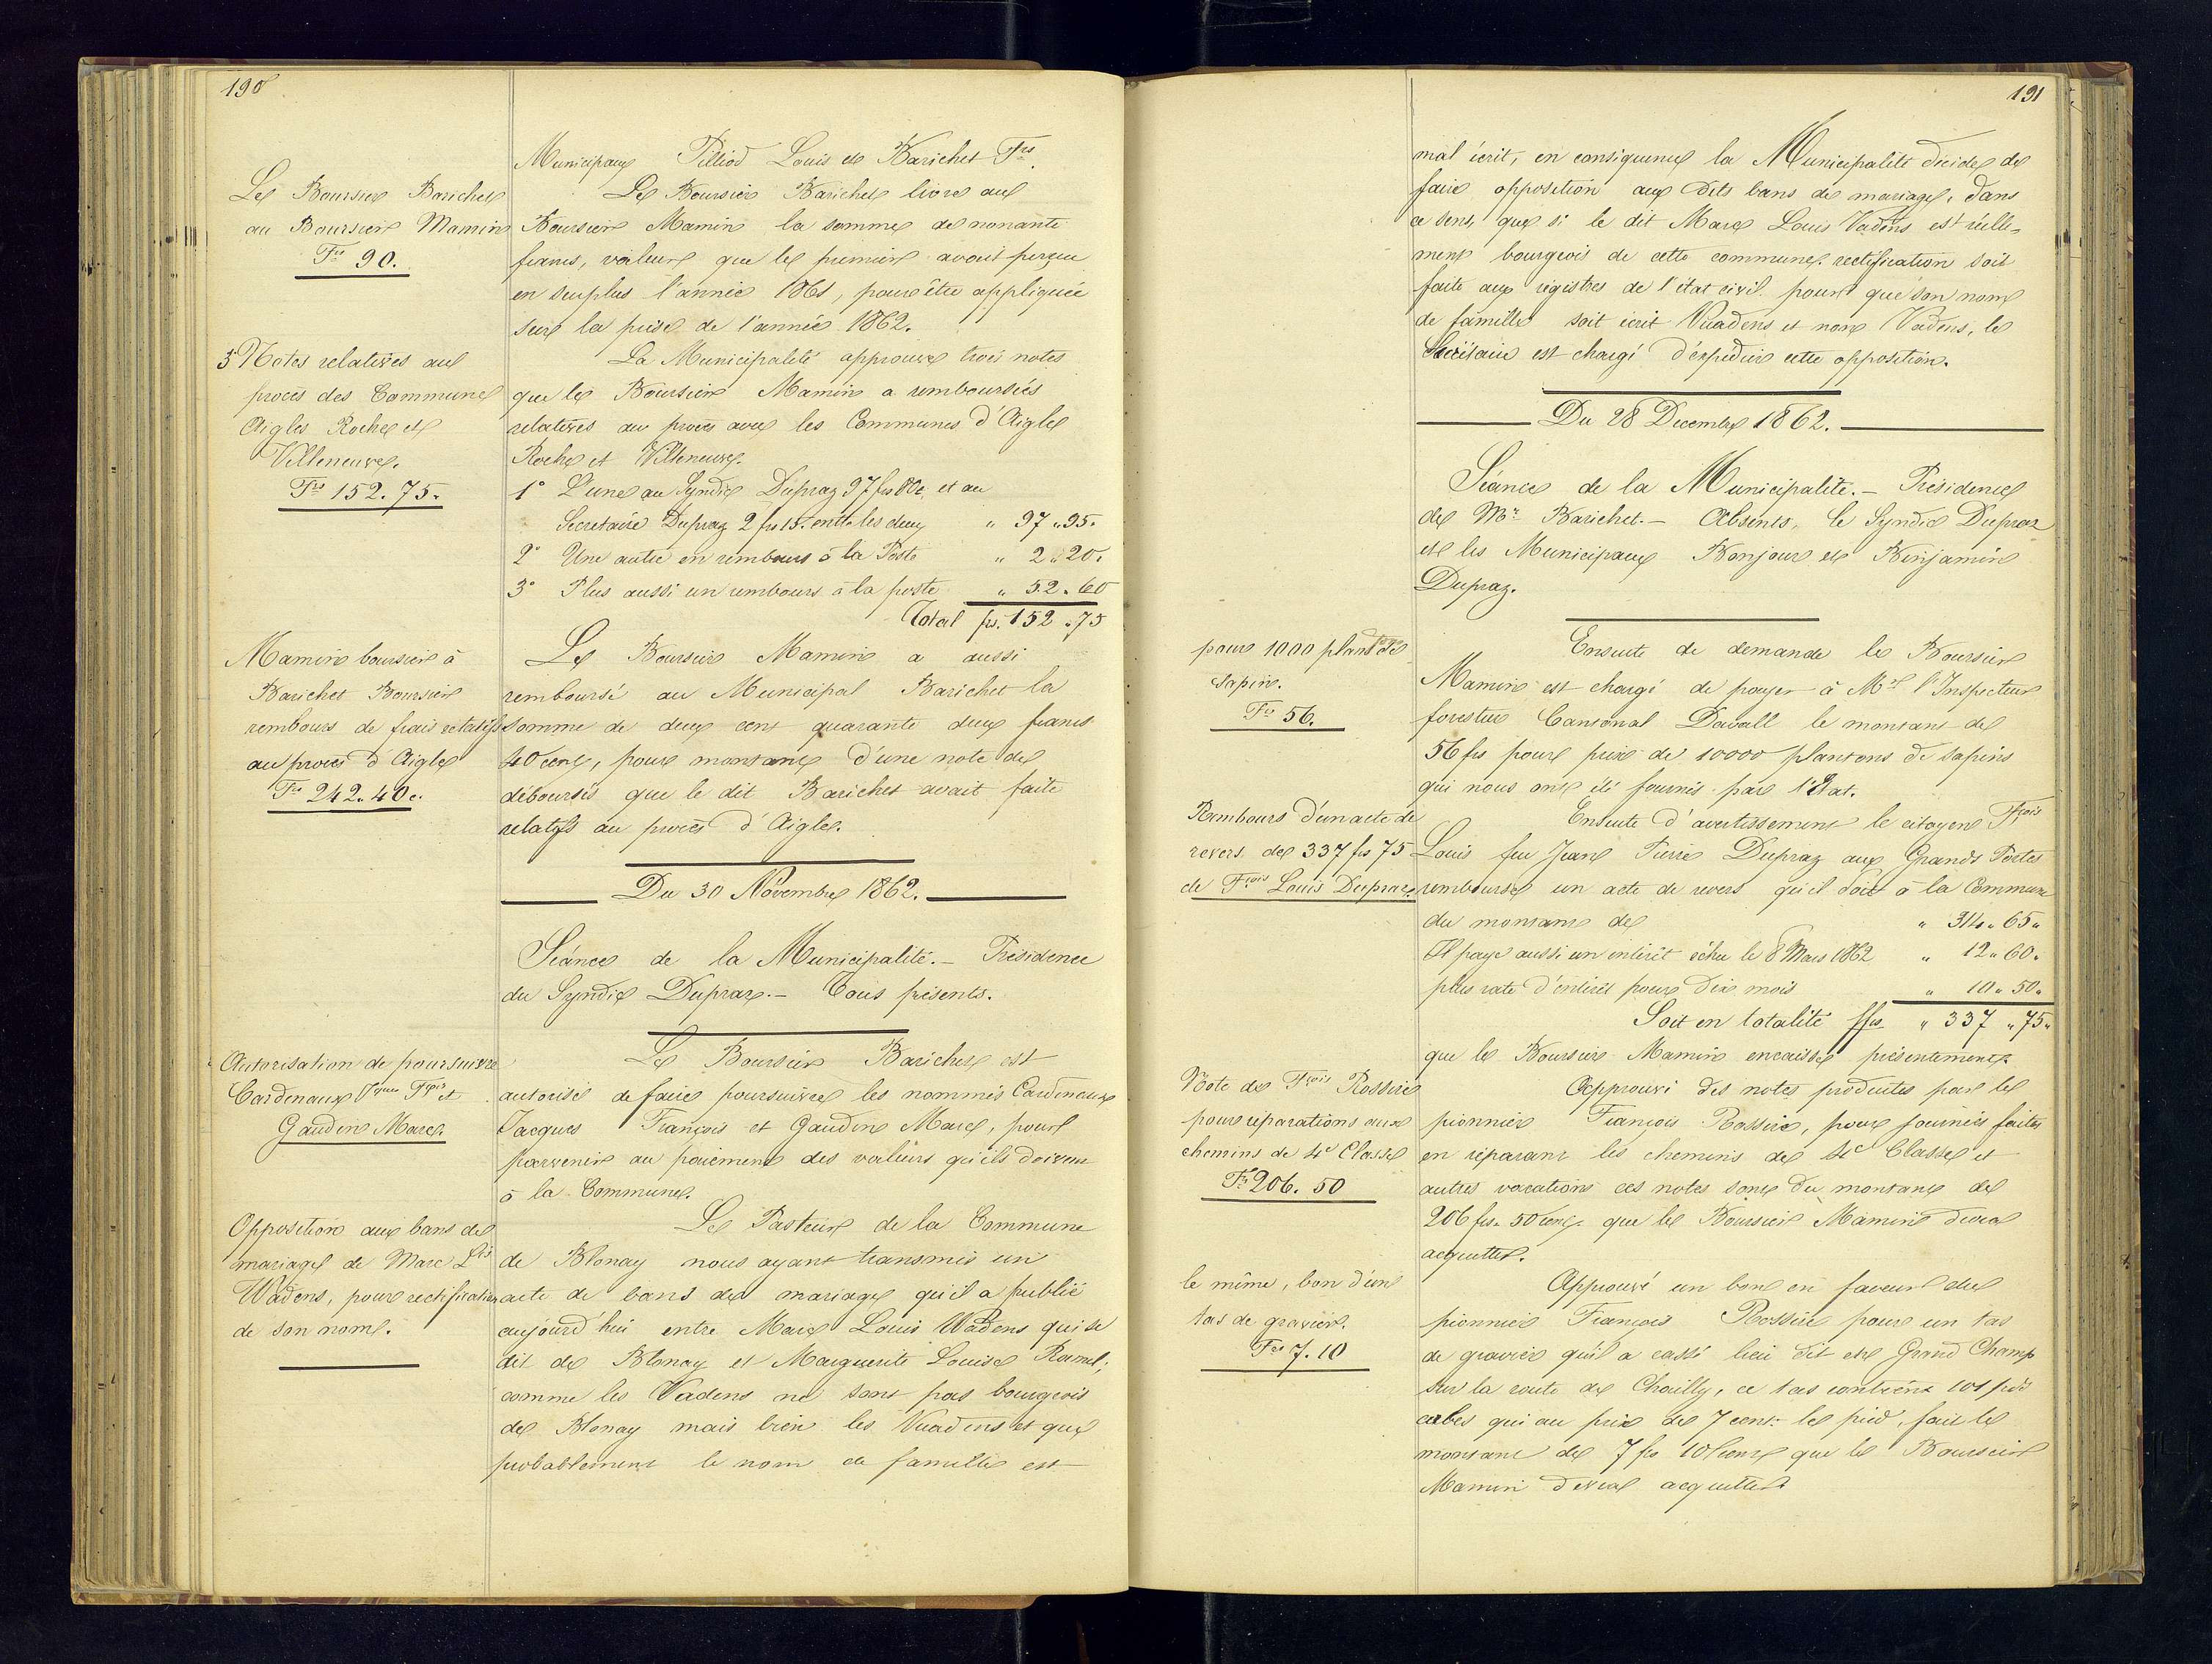 190
Municipaux Pilliod Louis et Barichet Frs.
Le Boursier Barichet
au Boursier Mamin
Frs 90.
Le Boursier Barichet livre au
Boursier Mamin la somme de nonante
francs, valeur que le premier avait perçue
en surplus l'année 1861, pour être appliquée
sur la prise de l'année 1862.
3 Notes relatives au
procès des Commune
Aigle Roche et
Villeneuve.
Frs 152. 75.
La Municipalité approuve trois notes
que le Boursier Mamin a remboursées
relatives au procès avec les Communes d'Aigle
Roche et Villeneuve.
1° L'une au Syndic Dupraz 97 frs 80c et au
Secretaire Dupraz 2 frs 15. entre les deux " 97 " 95.
2° Une autre en rembours à la Poste " 2 " 20.
3° Plus aussi un rembours à la poste " 52 " 60
Total frs. 152 " 75
Mamin boursier à
Barichet Boursier
rembours de frais relatifs
au procès d'Aigle
Frs 242. 40c.
Le Boursier Mamin a aussi
remboursé au Municipal Barichet la
somme de deux cent quarante deux francs
40 cent, pour montant d'une note de
déboursés que le dit Barichet avait faite
relatifs au procès d'Aigle.
Du 30 Novembre 1862.
Séance de la Municipalité.- Présidence
du Syndic Dupraz.- Tous présents.
Autorisation de poursuivre
Cardenaux Jques Fçois et
Gaudin Marc.
Le Boursier Barichet est
autorisé de faire poursuivre les nommés Cardenaux
Jacques François et Gaudin Marc, pour
parvenir au paiement des valeurs qu'ils doivent
à la Commune.
Opposition aux bans de
mariage de Marc Ls
Wadens, pour rectification
de son nom.
Le Pasteur de la Commune
de Blonay nous ayant transmis un
acte de bans de mariage qu'il a publié
aujourd'hui entre Marc Louis Wadens qui se
dit de Blonay et Marguerite Louise Ramel,
comme les Vadens ne sont pas bourgeois
de Blonay mais bien les Vuadens et que
probablement le nom de famille est
191
mal écrit, en conséquence la Municipalité décide de
faire opposition aux dits bans de mariage, dans
ce sens, que si le dit Marc Louis Vadens est réelle-
ment bourgeois de cette commune rectification soit
faite aux régistres de l'état civil pour que son nom
de famille soit écrit Vuadens et non Vadens, le
Secrétaire est chargé d'expédier cette opposition.
Du 28 Decembre 1862.
Séance de la Municipalité.- Présidence
de Mr. Barichet.- Absents, le Syndic Dupraz
et les Municipaux Bonjour et Benjamin
Dupraz.
pour 1000 plant de
sapin.
Frs 56.
Ensuite de demande le Boursier
Mamin est chargé de payer à Mr l'Inspecteur
forestier Cantonal Davall le montant de
56 frs pour prix de 10000 plantons de sapins
qui nous ont été fournis par l'Etat.
Rembours d'un acte de
revers de 337 frs 75
de Fçois Louis Dupraz
Ensuite d'avertissement le citoyen Fçois
Louis feu Jean Pierre Dupraz aux Grands Portes
rembourse un acte de revers qu'il doit à la Commune
du montant de " 314 " 65 "
Il paye aussi un intérêt échu le 8 Mars 1862 " 12 " 60 "
plus rate d'intérêt pour dix mois " 10 " 50 "
Soit en totalité ffrs " 337 " 75 "
que le Boursier Mamin encaisse présentement.
Note de Fçois Rossire
pour réparations aux
chemins de 4e Classe
Frs 206. 50
Approuvé des notes produites par le
pionnier François Rossire, pour journées faites
en réparant les chemins de 4e Classe et
autres vacations ces notes sont du montant de
206 frs. 50 cent. que le Boursier Mamin devra
acquitter.
le même, bon d'un
tas de gravier.
Frs 7. 10
Approuvé un bon en faveur du
pionnier François Rossire pour un tas
de gravier qu'il a cassé lieu dit en Grand Champ
sur la route de Chailly, ce tas contient 101 pds
cubes qui au prix de 7 cent. le pied, fait le
montant de 7 frs 10 cent que le Boursier
Mamin devra acquitter.